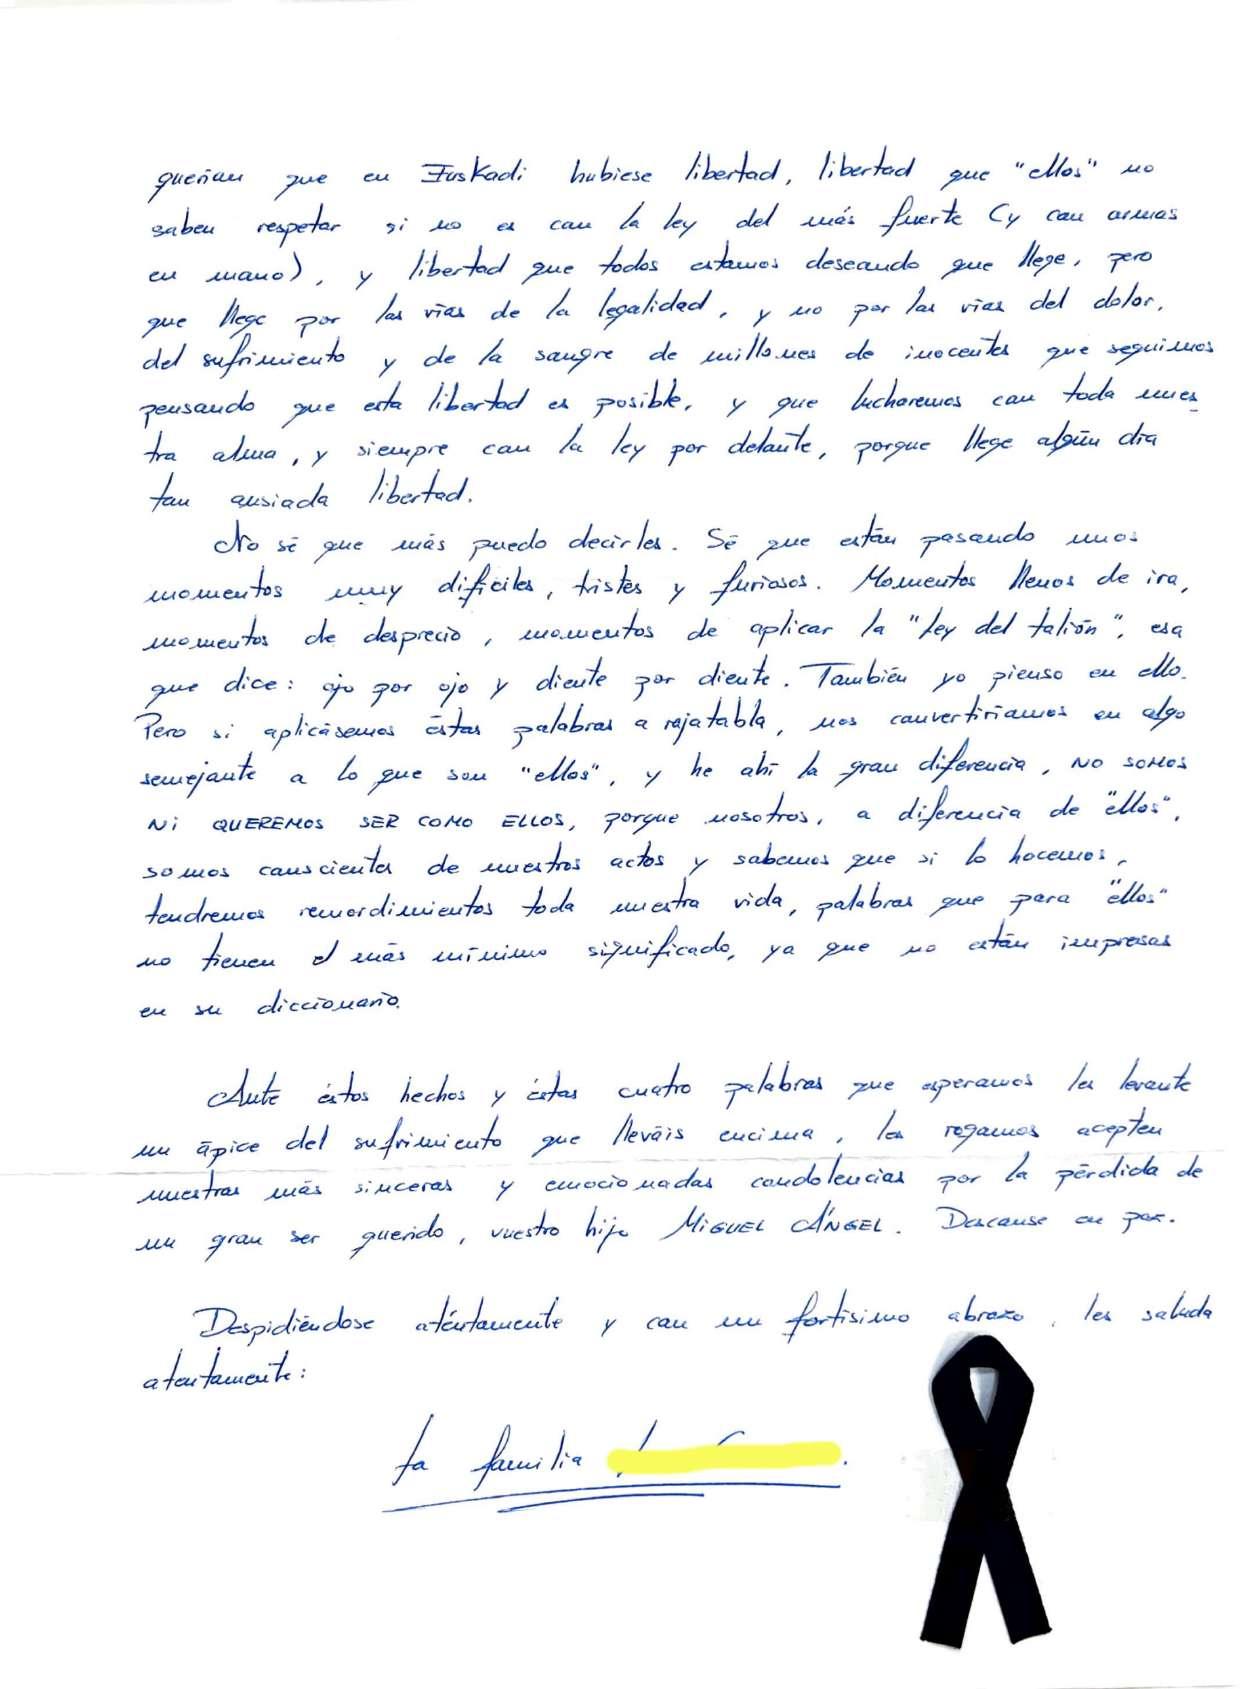 querían que en Euskadi hubiese libertad, libertad que "ellos" no
saben respetar si no es con la ley del más fuerte (y con armas
en mano), y libertad que todos estamos deseando que llege, pero
que llege por las vías de la legalidad, y no por las vías del dolor,
del sufrimiento y de la sangre de millones de inocentes que seguimos
pensando que esta libertad es posible, y que lucharemos con toda nues_
tra alma, y siempre con la ley por delante, porque llege algún día
tan ansiada libertad.
No sé que más puedo decirles. Sé que están pasando unos
momentos muy difíciles, tristes y furiosos. Momentos llenos de ira,
momentos de desprecio, momentos de aplicar la "Ley del talión", esa
que dice: ojo por ojo y diente por diente. También yo pienso en ello.
Pero si aplicásemos éstas palabras a rajatabla, nos convertiríamos en algo
semejante a lo que son "ellos", y he ahí la gran diferencia, NO SOMOS
NI QUEREMOS SER COMO ELLOS, porque nosotros, a diferencia de "ellos",
somos conscientes de nuestros actos y sabemos que si lo hacemos,
tendremos remordimientos toda nuestra vida, palabras que para "ellos"
no tienen el más mínimo significado, ya que no están impresas
en su diccionario.
Ante éstos hechos y éstas cuatro palabras que esperamos les levante
un ápice del sufrimiento que lleváis encima, les rogamos acepten
nuestras más sinceras y emocionadas condolencias por la pérdida de
un gran ser querido, vuestro hijo MIGUEL ÁNGEL. Descanse en paz.
Despidiéndose aténtamente y con un fortísimo abrazo, les saluda
atentamente:
La familia